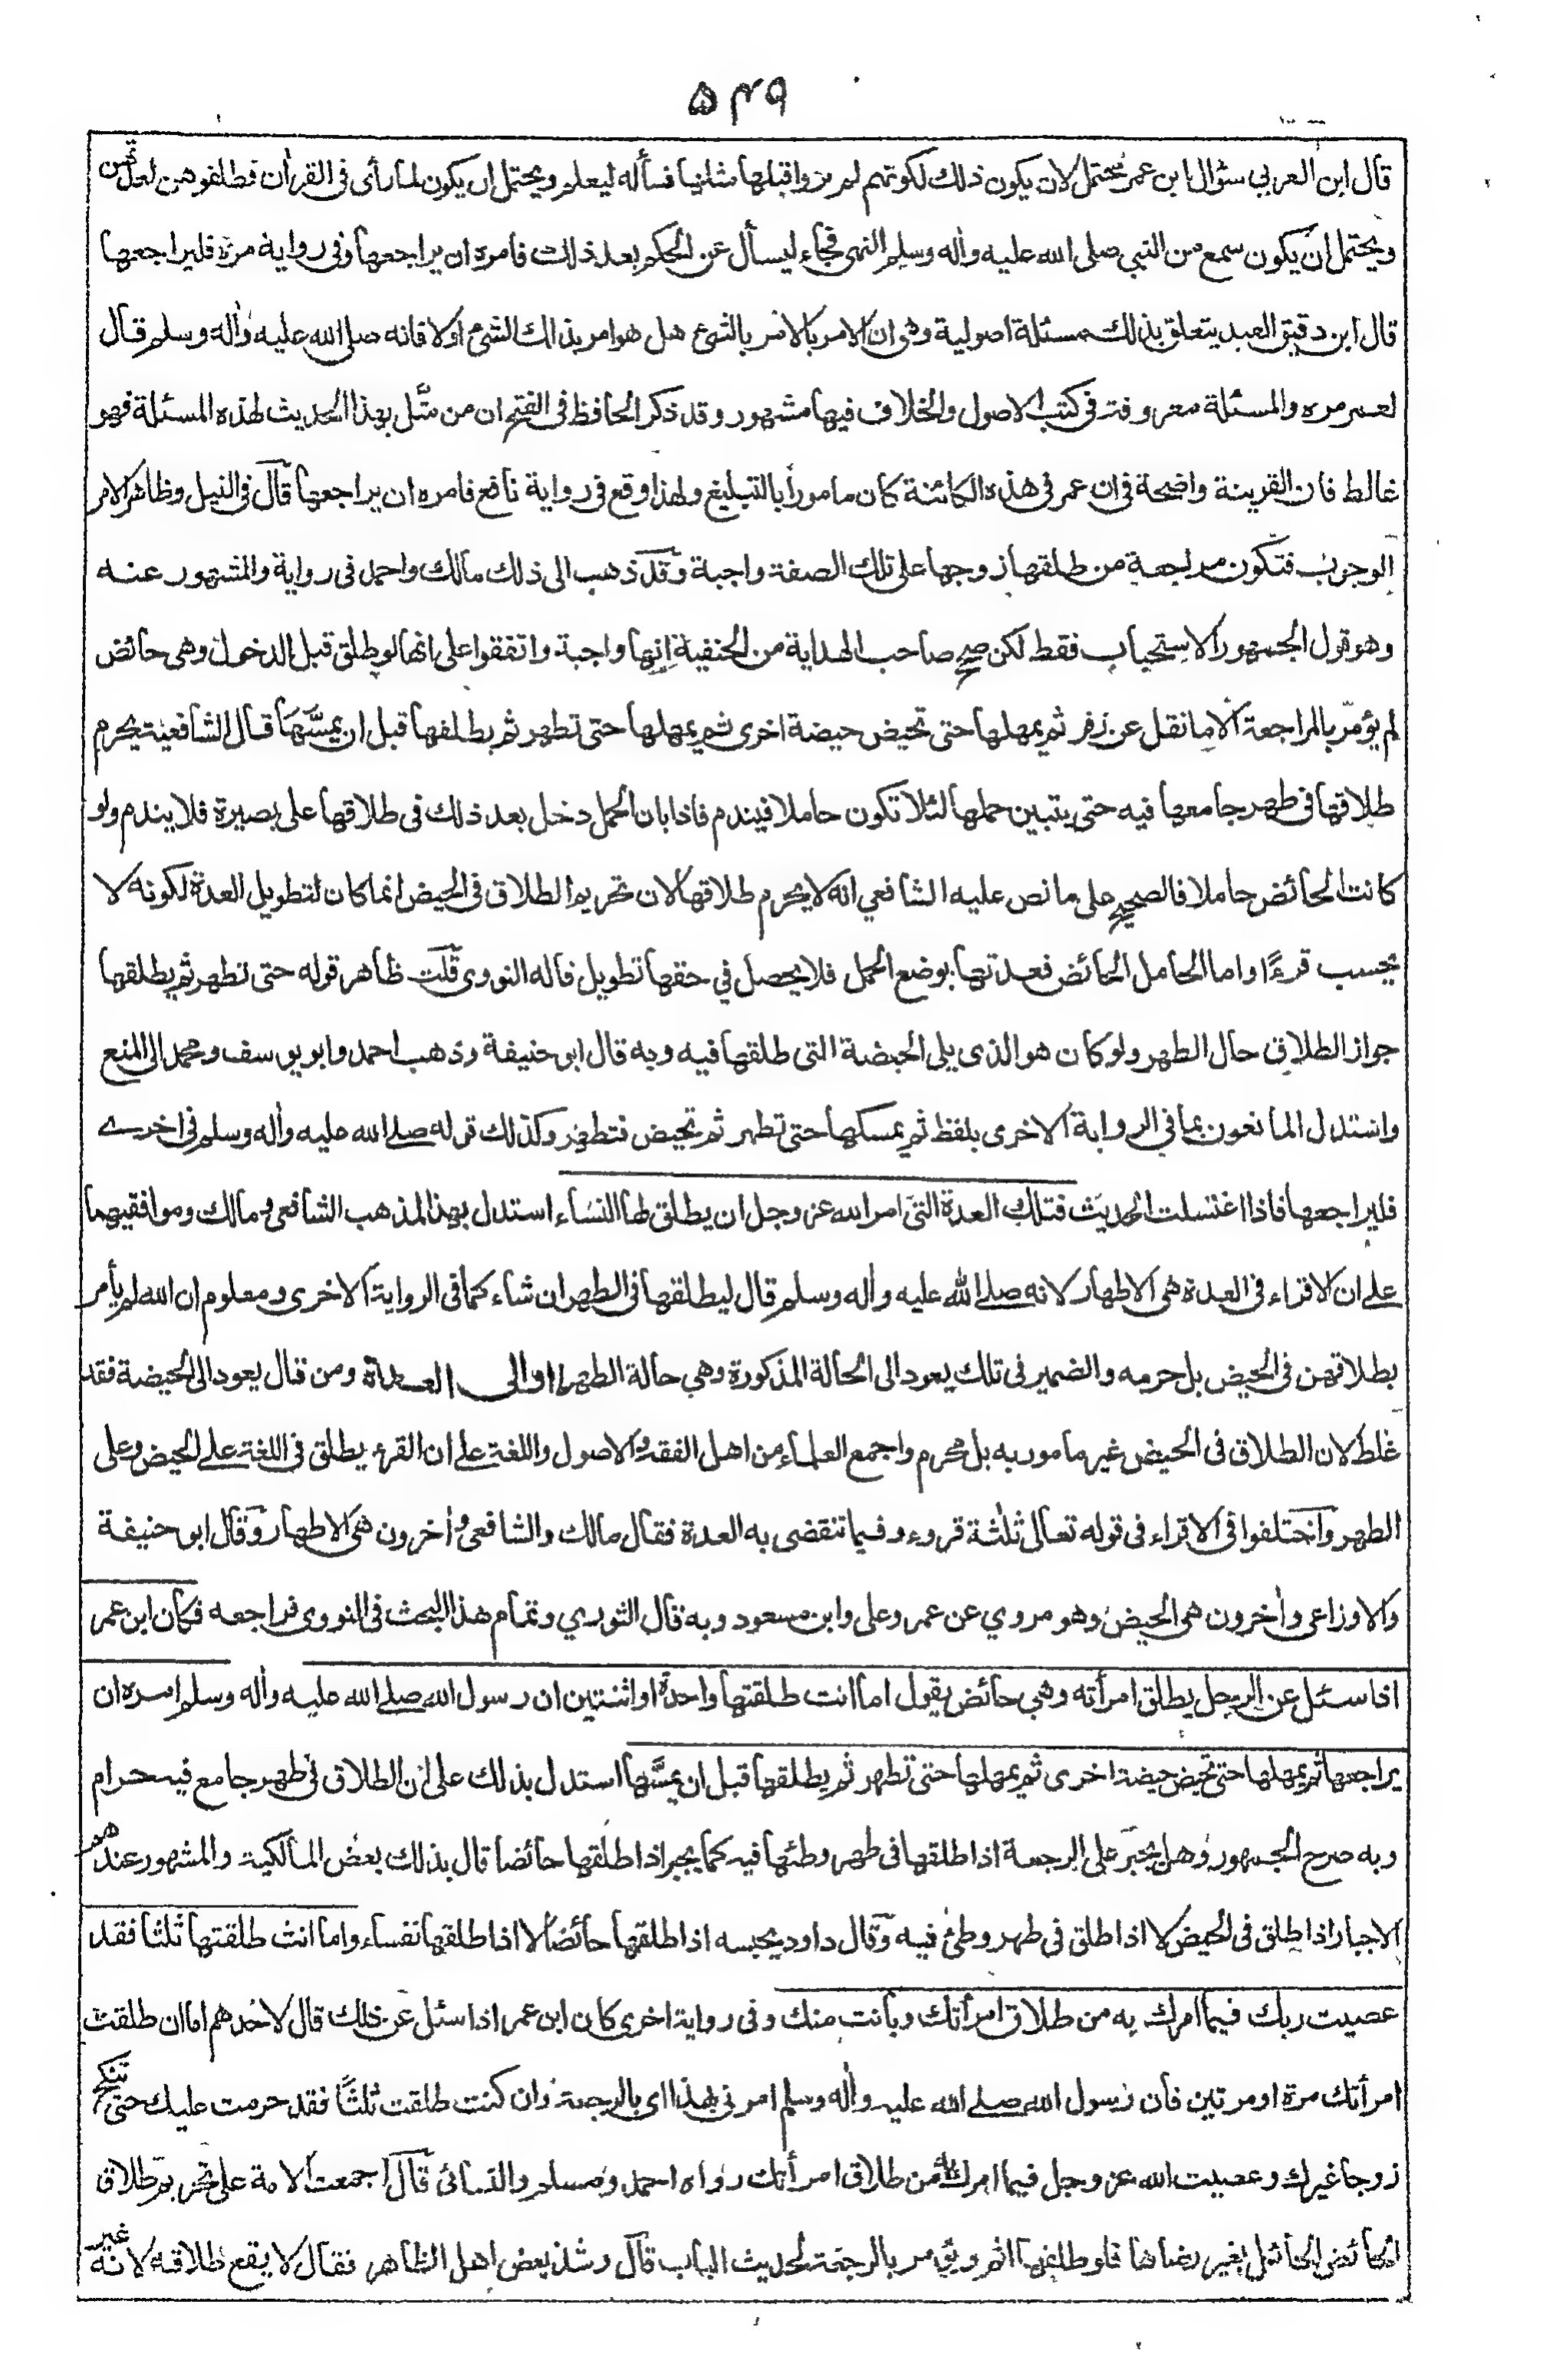 ۵۴۹
قال ابن العربي سؤال ابن عمر محتمل لان يكون ذلك لكونهم لم يروا قبلها مثلها فسأله ليعلم ويحتمل ان يكون لما رأى فى القرأن فطلقوهن لعدتهن
ويحتمل ان يكون سمع من النبي صلى الله عليه وأله وسلم النهى فجاء ليسأل عن الحكم بعد ذلك فامره ان يراجعها وفى رواية مره فليراجعها
قال ابن دقيق العيد يتعلق بذلك مسئلة اصولية وهى ان الامر بالامر بالشئ هل هو امر بذالك الشئ اولا فانه صلى الله عليه وأله وسلم قال
لعمر مره والمسئلة معروفة فى كتب الاصول والخلاف فيها مشهور وقد ذكر الحافظ فى الفتح ان من مثّل بهذا الحديث لهذه المسئلة فهو
غالط فان القرينة واضحة فى ان عمر فى هذه الكائنة كان مامورا بالتبليغ ولهذا وقع فى رواية نافع فامره ان يراجعها قال فى النيل وظاهر الامر
الوجوب فتكون مراجعة من طلقها زوجها على تلك الصفة واجبة وقد ذهب الى ذلك مالك واحمد فى رواية والمشهور عنه
وهو قول الجمهور الاستحباب فقط لكن صحح صاحب الهداية من الحنفية انها واجبة واتفقوا على انها لو طلق قبل الدخول وهى حائض
لم يؤمر بالمراجعة الا ما نقل عن زفر ثم يمهلها حتى تحيض حيضة اخرى ثم يمهلها حتى تطهر ثم يطلقها قبل ان يمسّها قال الشافعية يحرم
طلاقها فى طهر جامعها فيه حتى يتبين حملها لئلا تكون حاملا فيندم فاذا بان الحمل دخل بعد ذلك فى طلاقها على بصيرة فلا يندم ولو
كانت الحائض حاملا فالصحيح على ما نص عليه الشافعي انه لا يحرم طلاقها لان تحريم الطلاق فى الحيض انما كان لتطويل العدة لكونه لا
يحسب قرءًا واما الحامل الحائض فعدتها بوضع الحمل فلا يحصل في حقها تطويل قاله النووى قلت ظاهر قوله حتى تطهر ثم يطلقها
جواز الطلاق حال الطهر ولو كان هو الذى يلى الحيضة التى طلقها فيه وبه قال ابو حنيفة وذهب احمد وابو يوسف ومحمد الى المنع
واستدل المانعون بما فى الرواية الاخرى بلفظ ثم يمسكها حتى تطهر ثم تحيض فتطهر وكذلك قوله صلى الله عليه وأله وسلم فى اخرى
فليراجعها فاذا اغتسلت الحديث فتلك العدة التى امر الله عز وجل ان يطلق لها النساء استدل بهذا المذهب الشافعي ومالك وموافقيهما
على ان الاقراء فى العدة هى الاطهار لانه صلى الله عليه وأله وسلم قال ليطلقها فى الطهر ان شاء كما فى الرواية الاخرى ومعلوم ان الله لم يأمر
بطلاقهن فى الحيض بل حرمه والضمير فى تلك يعود الى الحالة المذكورة وهي حالة الطهر او الى العدة ومن قال يعود الى الحيضة فقد
غلط لان الطلاق فى الحيض غير مامور به بل محرم واجمع العلماء من اهل الفقه والاصول واللغة على ان القرء يطلق فى اللغة على الحيض وعلى
الطهر واختلفوا فى الاقراء فى قوله تعالى ثلثة قروء وفيما تنقضى به العدة فقال مالك والشافعى وأخرون هى الاطهار وقال ابو حنيفة
والاوزاعى وأخرون هى الحيض وهو مروي عن عمر وعلى وابن مسعود وبه قال الثوري وتمام هذا البحث فى النووى فراجعه فكان ابن عمر
اذا سئل عن الرجل يطلق امرأته وهي حائض يقول اما انت طلقتها واحدة او اثنتين ان رسول الله صلى الله عليه وأله وسلم امره ان
يراجعها ثم يمهلها حتى تحيض حيضة اخرى ثم يمهلها حتى تطهر ثم يطلقها قبل ان يمسّها استدل بذلك على ان الطلاق فى طهر جامع فيه حرام
وبه صرح الجمهور وهل يجبر على الرجعة اذا طلقها فى طهر وطئها فيه كما يجبر اذا طلقها حائضا قال بذلك بعض المالكية والمشهور عندهم
الاجبار اذا طلق فى الحيض لا اذا طلق فى طهر وطئ فيه وقال داود يجبر اذا طلقها حائضا لا اذا طلقها نفساء واما انت طلقتها ثلثا فقد
عصيت ربك فيما امرك به من طلاق امرأتك وبانت منك وفى رواية اخرى كان ابن عمر اذا سئل عن ذلك قال لاحدهم اما ان طلقت
امرأتك مرة او مرتين فان رسول الله صلى الله عليه وأله وسلم امرنى بهذا اى بالرجعة وان كنت طلقت ثلثًا فقد حرمت عليك حتى تنكح
زوجا غيرك وعصيت الله عز وجل فيما امرك به من طلاق امرأتك رواه احمد ومسلم والنسائى قال اجمعت الامة على تحريم طلاق
الحائض الحائل بغير رضاها فلو طلقها اثم ويؤمر بالرجعة لحديث الباب قال وشذ بعض اهل الظاهر فقال لا يقع طلاقه لانه غير